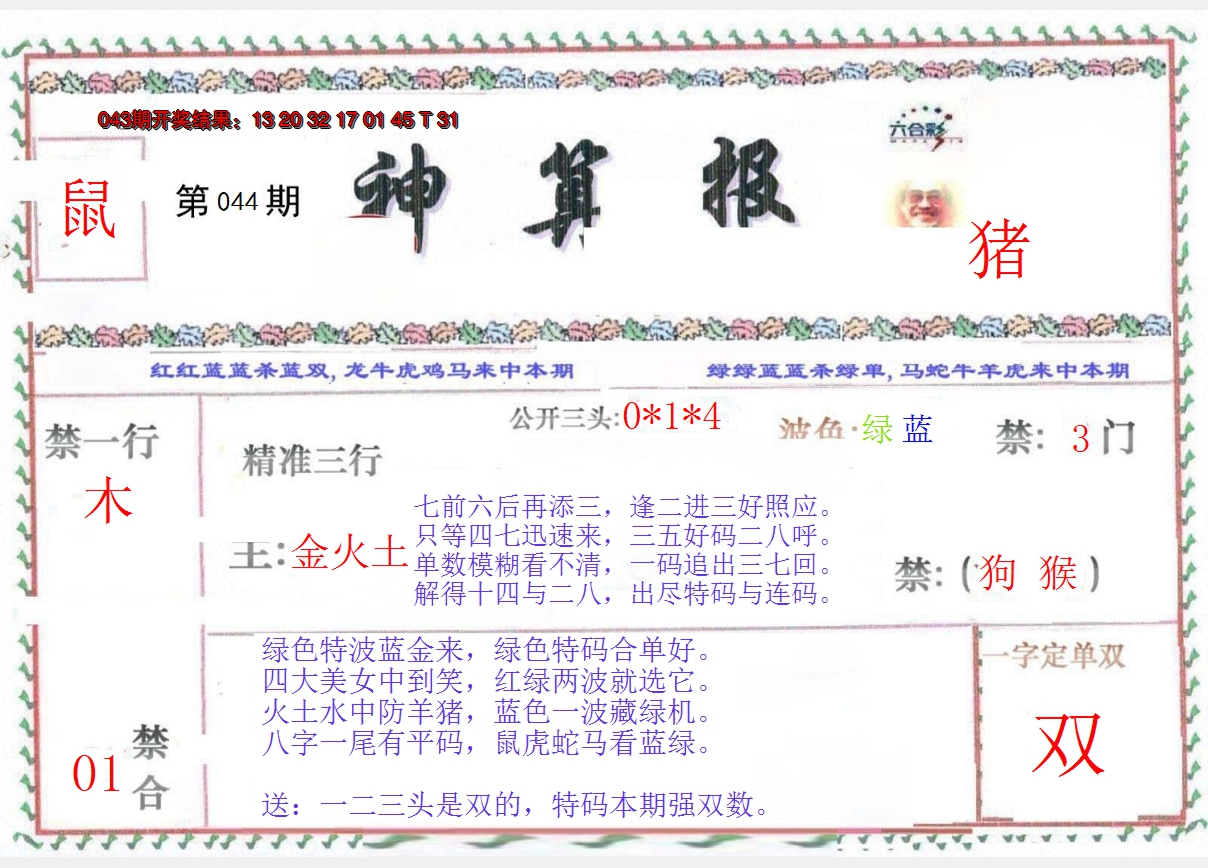 043期开奖结果：13 20 32 17 01 45 T 31
六合彩
鼠
第 044 期
神算报
猪
红红蓝蓝杀蓝双，龙牛虎鸡马来中本期
绿绿蓝蓝杀绿单，马蛇牛羊虎来中本期
禁一行
木
精准三行
主：金火土
公开三头：0*1*4
波色·绿 蓝
禁：3门
七前六后再添三，逢二进三好照应。
只等四七迅速来，三五好码二八呼。
单数模糊看不清，一码追出三七回。
解得十四与二八，出尽特码与连码。
禁：(狗 猴)
01
禁合
绿色特波蓝金来，绿色特码合单好。
四大美女中到笑，红绿两波就选它。
火土水中防羊猪，蓝色一波藏绿机。
八字一尾有平码，鼠虎蛇马看蓝绿。
送：一二三头是双的，特码本期强双数。
一字定单双
双